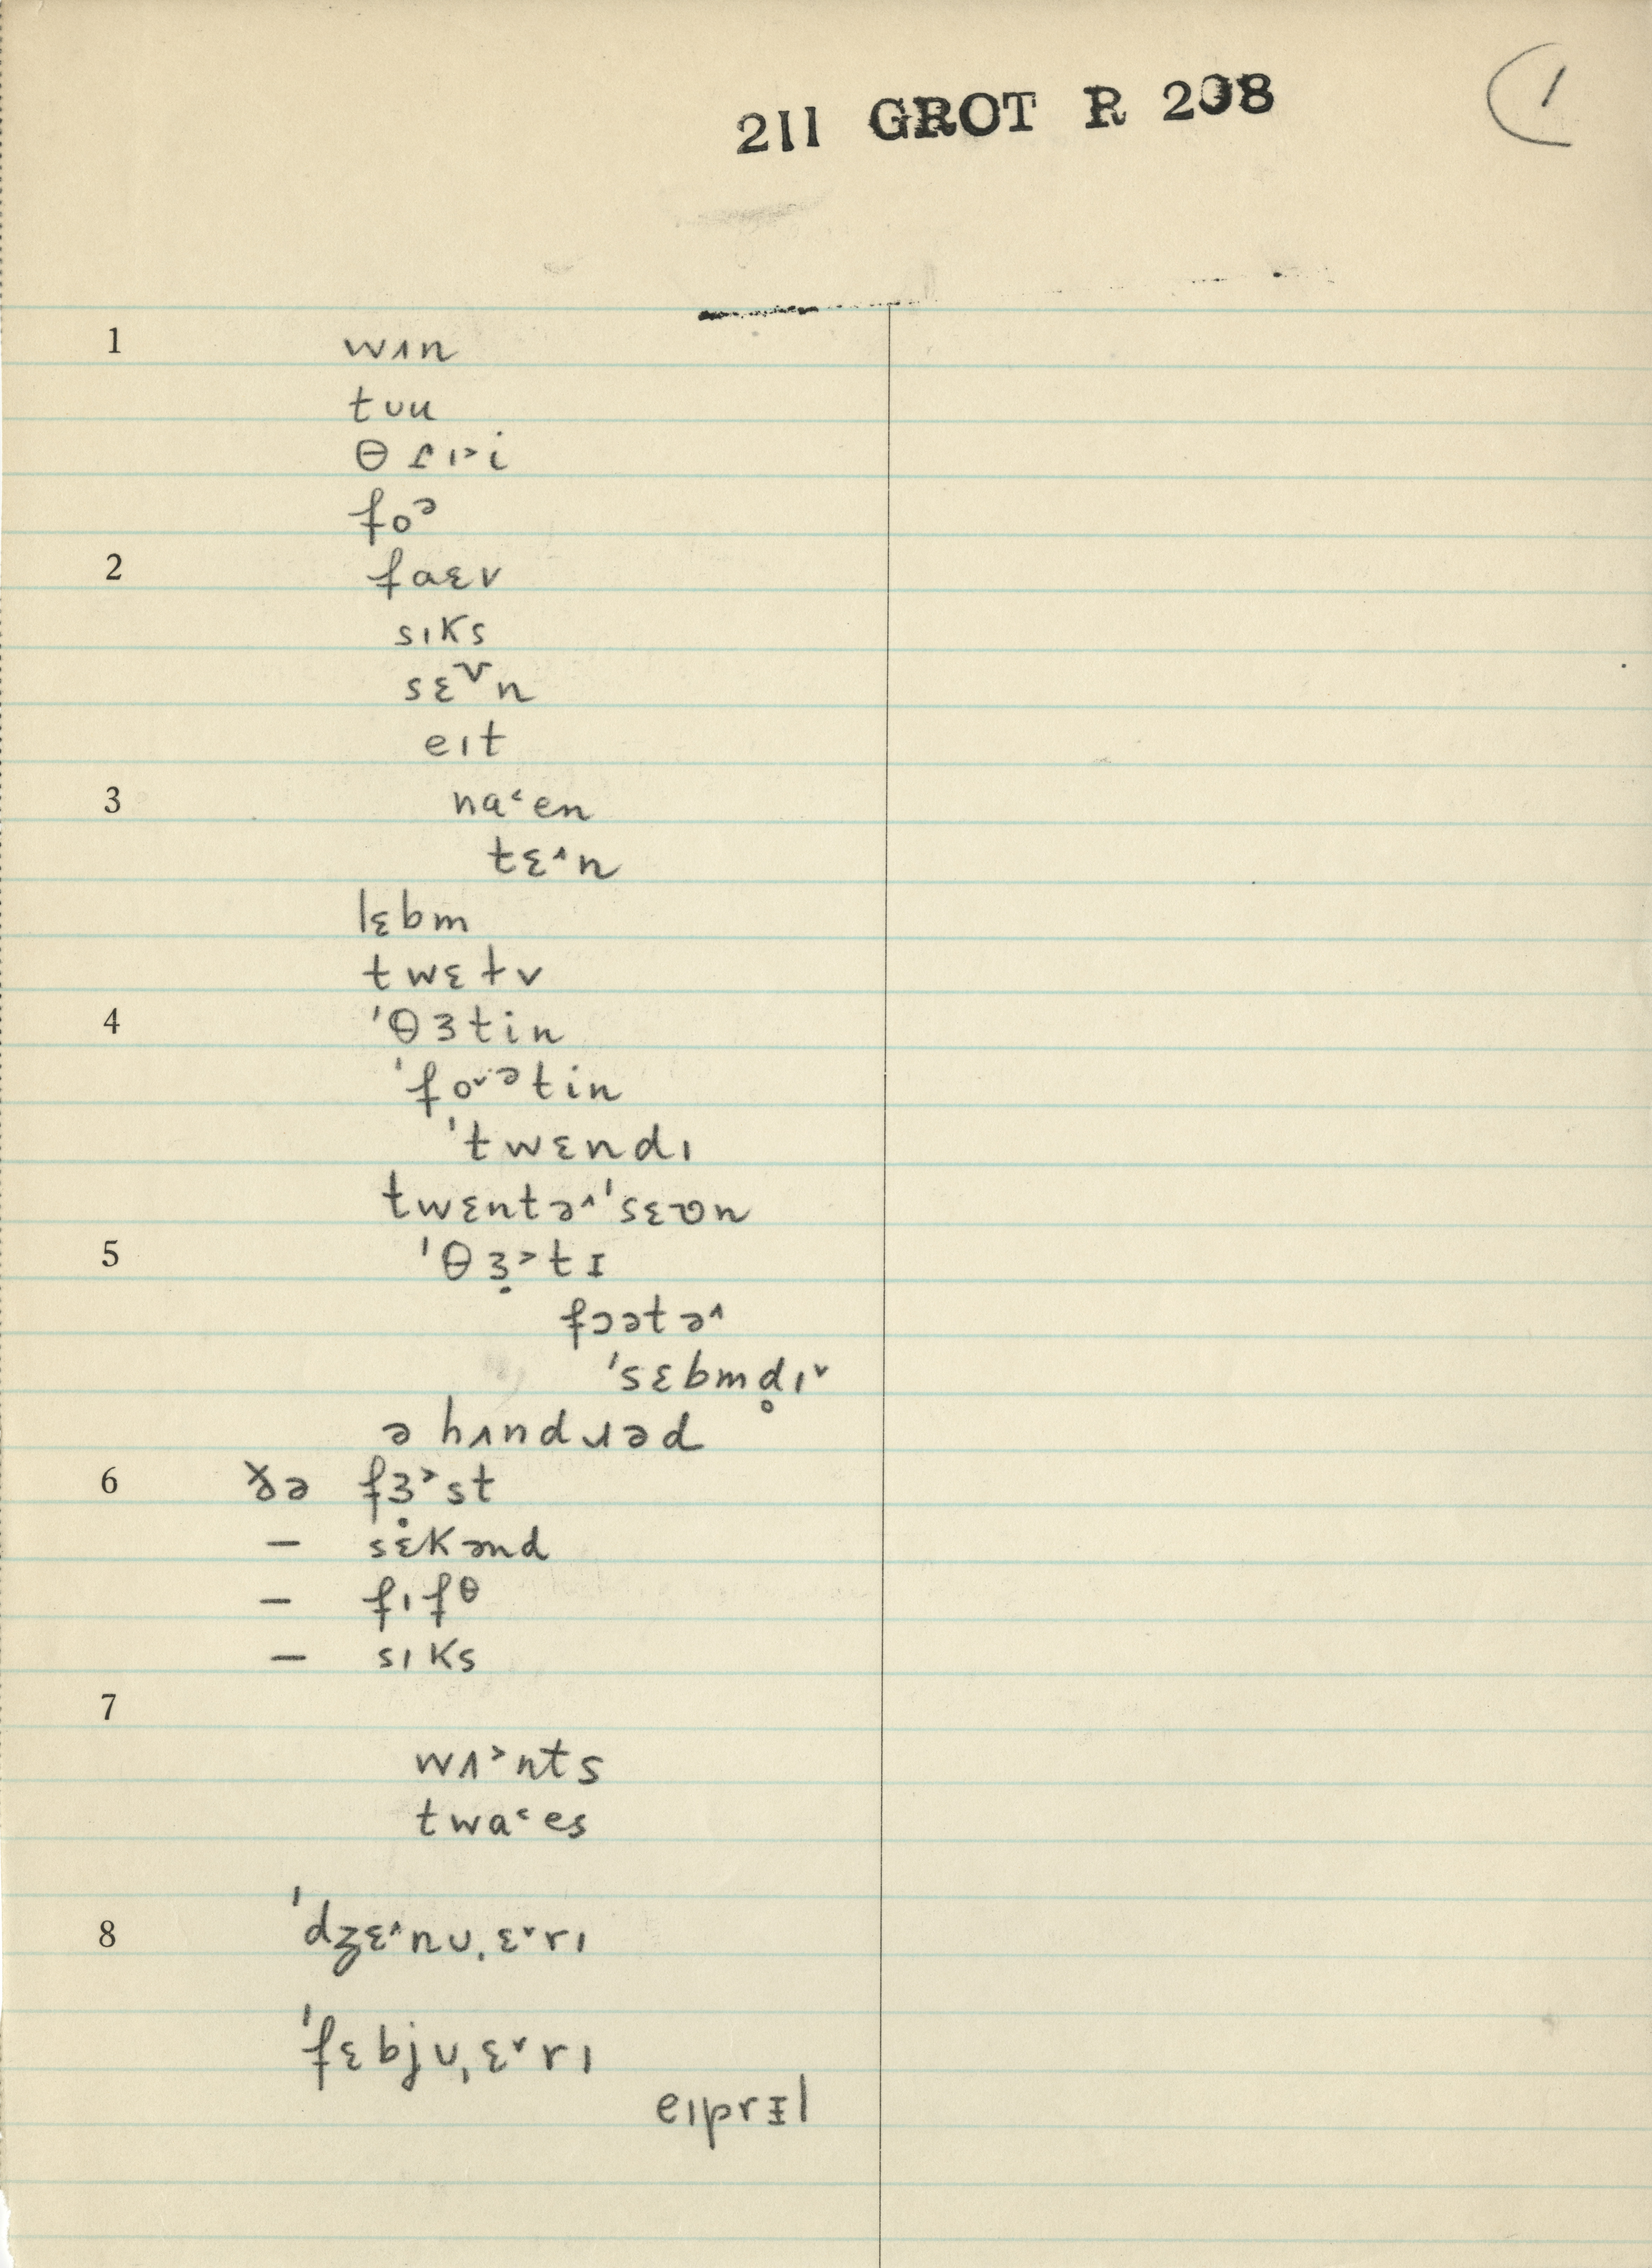 211 GROT R 208
1
1 wʌn
tᴜu
θɾɪ˃i
foᵊ
2 faɛv
sɪks
sɛᵛn
eɪt
3 na˂en
tɛ˄n
lɛbm
twɛtv
4 ˈθɜtin
ˈfo˅ᵊtin
ˈtwɛndɪ
twɛntə˄ˈsɛʋn
5 ˈθɜ̣˃tɪ
fɔətə˄
ˈsɛbmd̥ɪ˅
ə hʌndɹəd
6 ɤ̵ə fɜ̣˃st
— sɛkənd
— fɪfᶿ
— sɪks
7
wʌ˃nts
twa˂es
8 ˈdʒɛ˄nᴜˌɛ˅rɪ
ˈfɛbjᴜˌɛ˅rɪ
eɪprᵻl